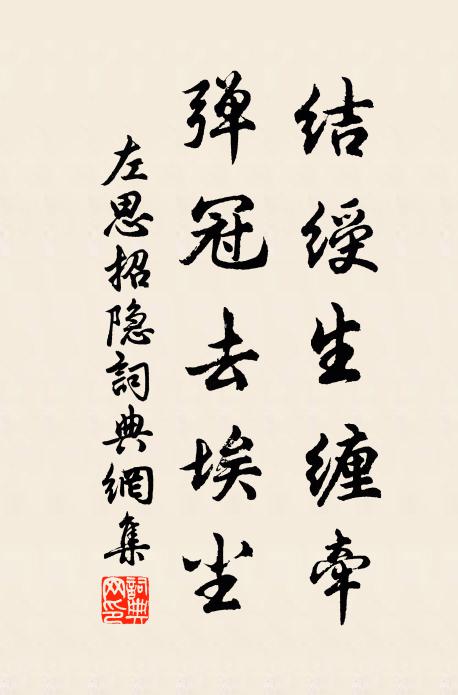 结绶生缠牵
弹冠去埃尘
左思招隐詞典網集
詞典网印